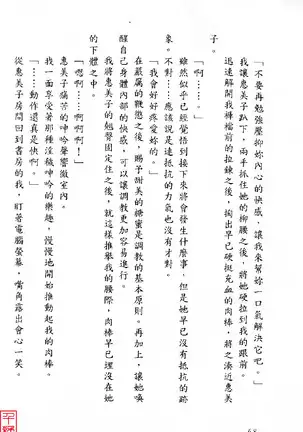 「不要再勉強壓抑妳內心的快感，讓我來幫妳一口氣解決它吧。」
我讓惠美子趴下，兩手抓住她的柳腰之後，將她硬拉到我的跟前。
迅速解開我褲襠前的拉鍊之後，掏出早已硬挺充血的肉棒，將之湊近惠美
子。
「啊……。」
雖然似乎已經覺悟到接下來將會發生什麼事，但是她早已沒有抵抗的跡
象。
不對……應該說是連抵抗的力氣也沒有才對。
「我會好好疼愛妳的。」
在嚴厲的鞭愬之後，賜予甜美的糖蜜是調教的基本原則。再加上，讓她喚
醒自己身體內部的快感，可以讓調教更加容易進行。
我將惠美子的翹臀固定住之後，就這樣推舉我的腰際，肉棒早已埋沒在她
的下體之中。
「嗯啊……啊啊啊！」
惠美子痛苦的呻吟聲響徹室內。
我一面享受著那種淫穢呻吟的樂趣，慢慢地開始推動起我的肉棒。
「……動作還真是快啊。」
從惠美子房間回到書房的我，盯著電腦螢幕，嘴角露出會心一笑。
68